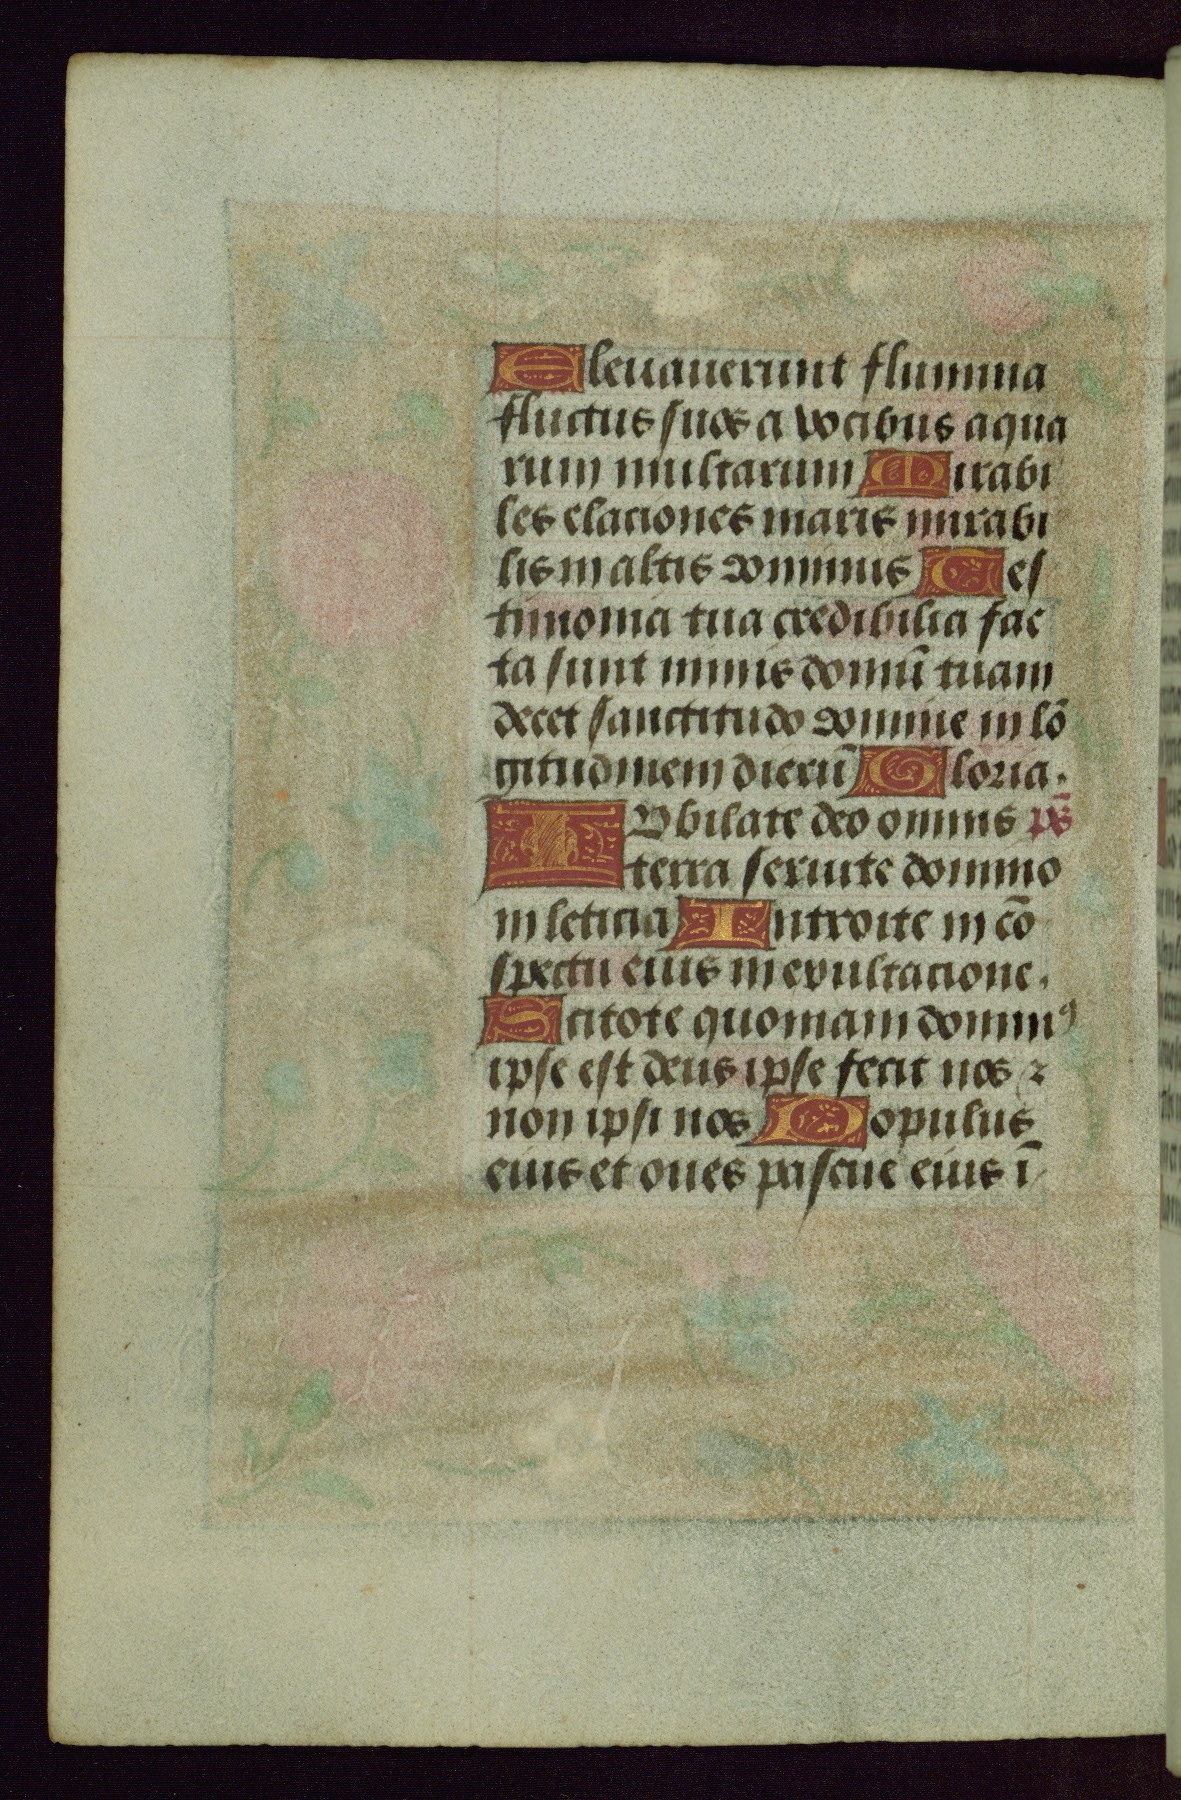 Eleuauerunt flumina
fluctus suos a vocibus aqua
rum multarum Mirabi
les elaciones maris mirabi
lis in altis dominus Tes
timonia tua credibilia fac
ta sunt nimis domū tuam
decet sanctitudo domine in lō
gitudinem dierū Gloria.
IVbilate deo omnis ps̄
terra seruite domino
in leticia Introite in cō
spectu eius in exultacione.
Scitote quoniam dominꝰ
ipse est deus ipse fecit nos ⁊
non ipsi nos Populus
eius et oues pascue eius ī